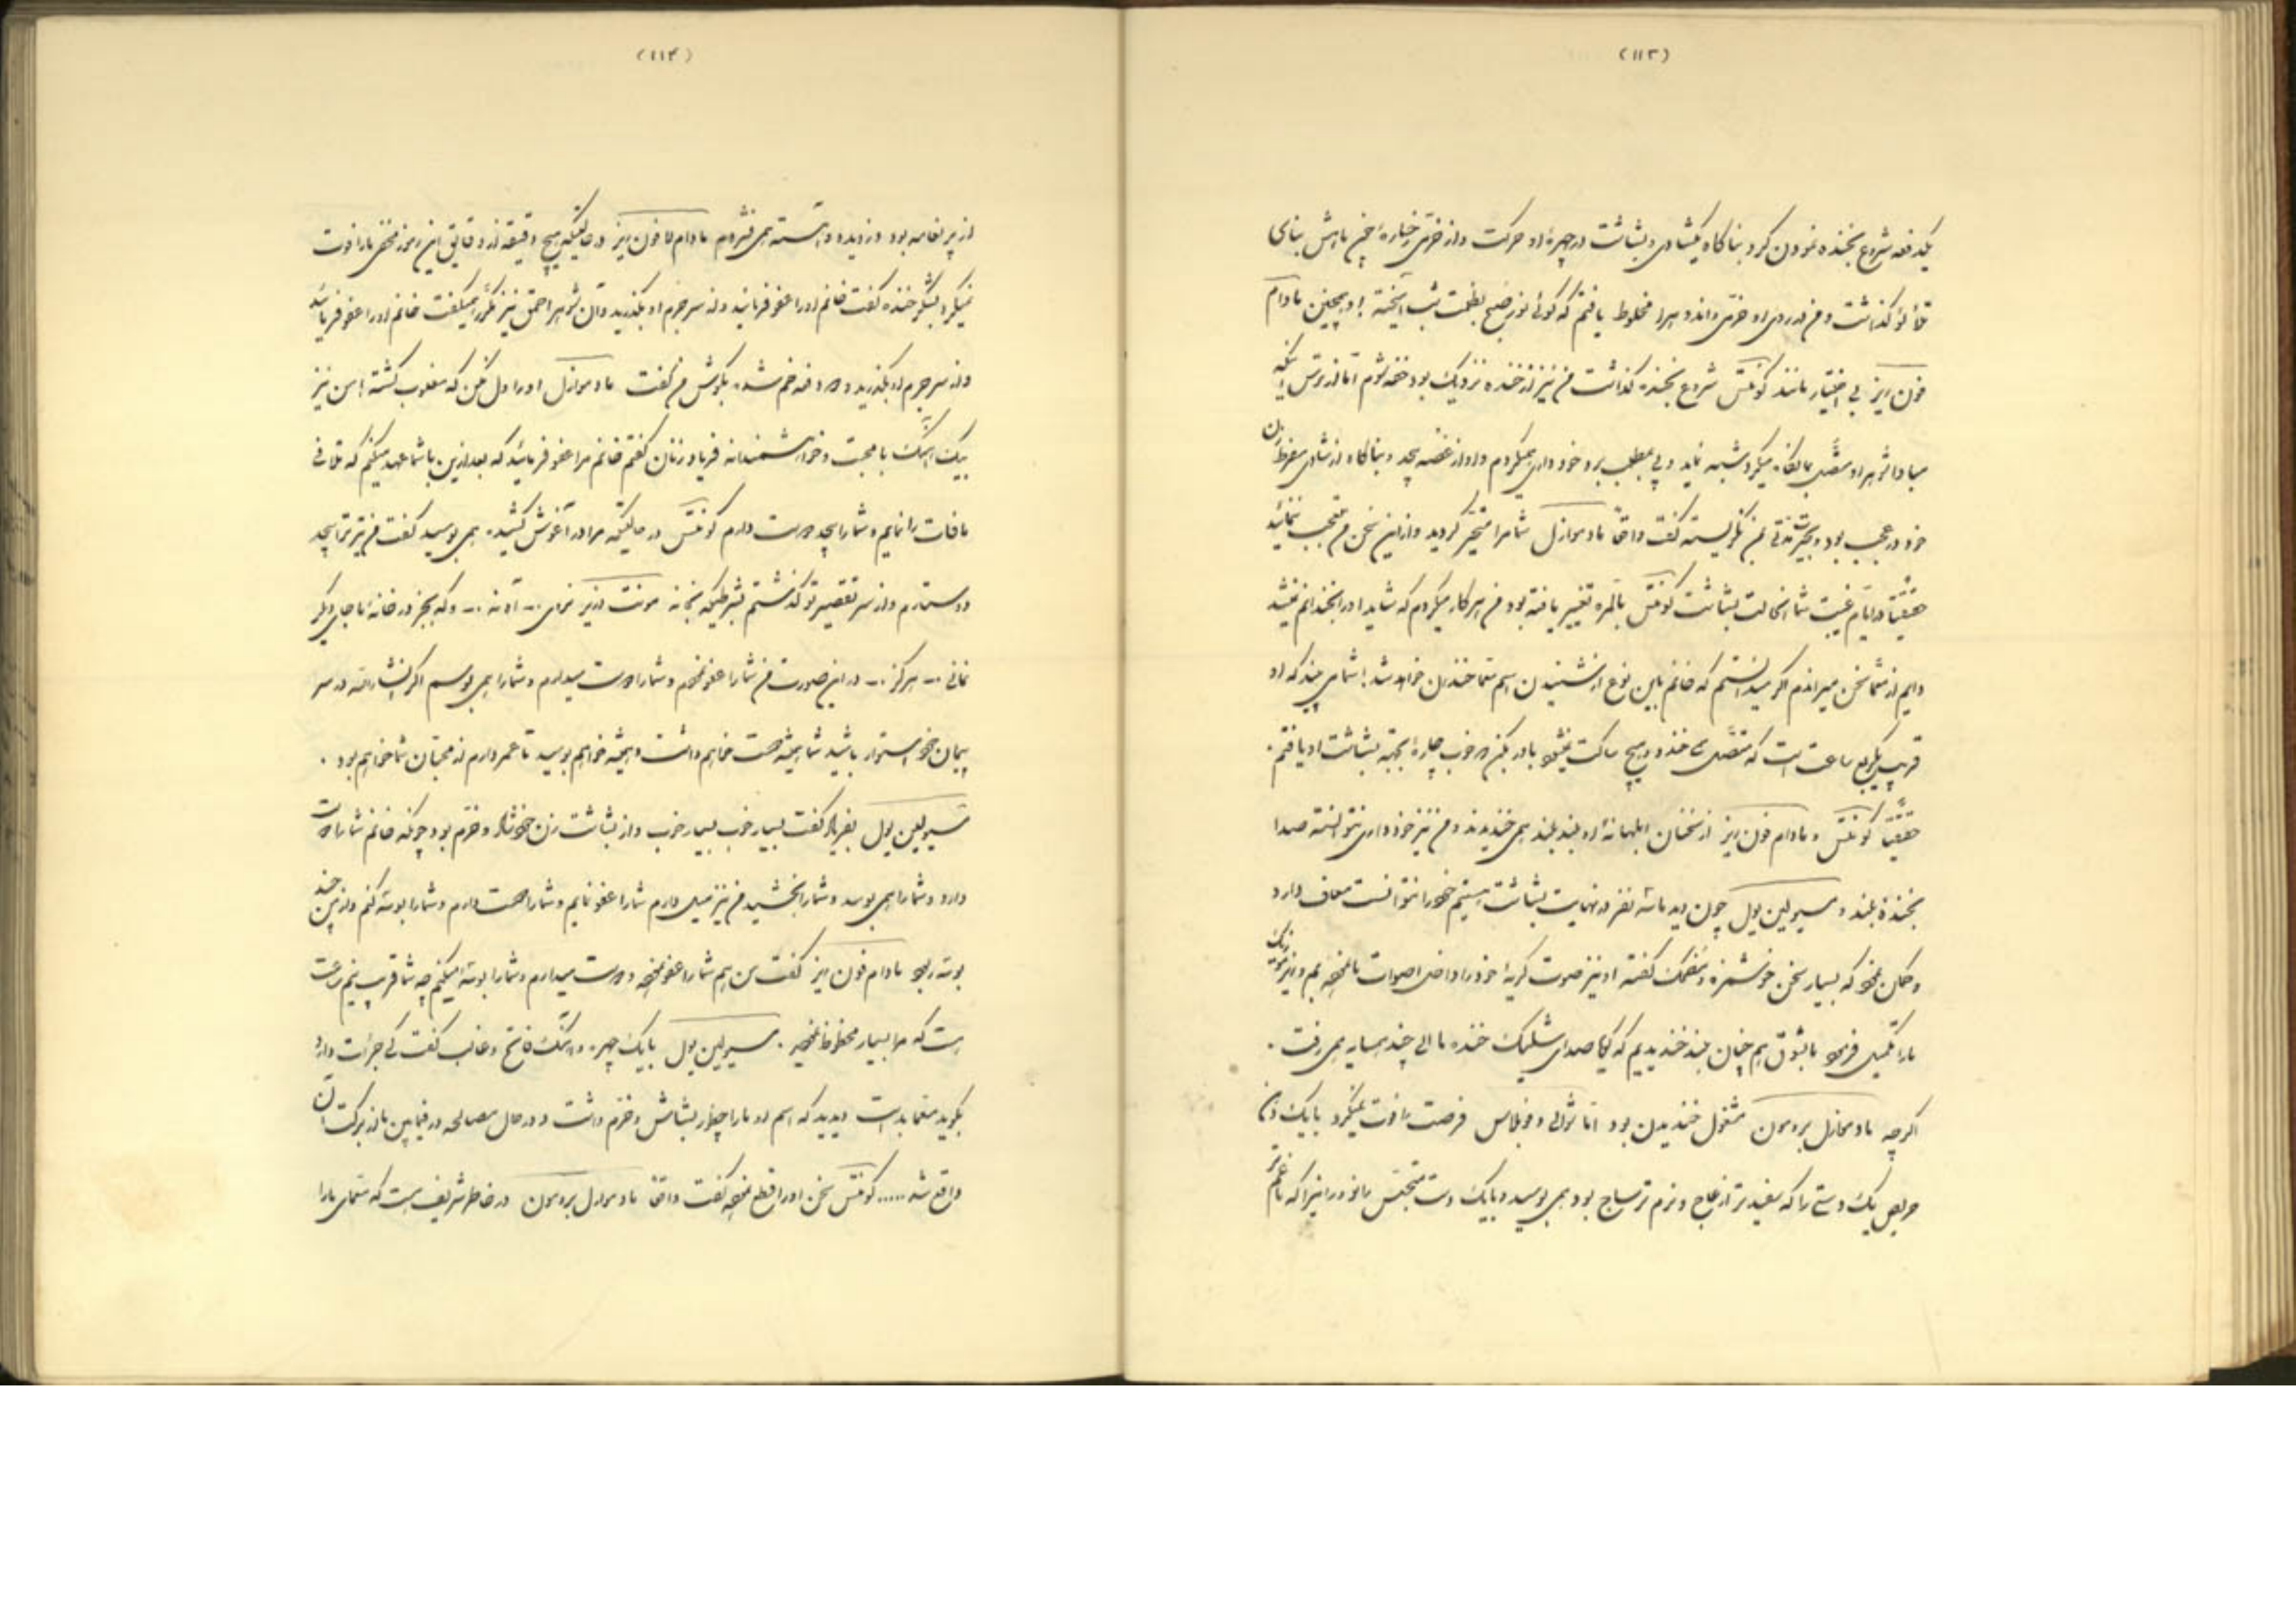 (۱۱۳)
یکدفعه شروع بخنده نمودن کرد بناگاه یکشادی و بشاشت در چهرهٔ او حرکت و از خرّمی رخسارهٔ بنای
تلألؤ گذاشت و من در روی او خرّمی و اندوه را مخلوط یافتم که گوئی نور صبح بظلمت شب آمیخته او همچنین مادام
فون ریز بی اختیار مانند کونتس شروع بخنده گذاشت من نیز از خنده نزدیک بود خفه شوم امّا از ترس اینکه
مبادا شوهر او متصّل بما نگاه میکرد شبهه نماید و پی بمطلب برد خود داری میکردم و او از غصّه بیحد و بناگاه از شادی مفرط زن
خود در عجب بود و بحیرت مدّتی بمن نگریسته گفت واقعاً مادموازل شما مرا متحیّر کردید و از این سخن من تعجب ننمائید
حقیقتاً در ایّام غیبت شما حالت بشاشت کونتس بالمره تغییر یافته بود من هر کار میکردم که شاید او را بخندانم نمیشد
دایم از شما سخن میراندم اگر میدانستم که خانم باین نوع از شنیدن اسم شما خندان خواهد شد شما می بینید که او
قریب یکربع ساعت است که متصّل می خندد و هیچ ساکت نمیشود باور بکن خوب چارهٔ بجهة بشاشت او یافتم .
حقیقتاً کونتس و مادام فون ریز از سخنان ابلهانهٔ او بلند بلند همی خندیدند و من نیز خود داری نتوانسته صدا
بخندهٔ بلند و مسیو لین پول چون دید ما سه نفر در نهایت بشاشت هستیم خود را نتوانست معاف دارد
و گمان نمود که بسیار سخن خوشمزه و مضحک گفته او نیز صوت کریه خود را داخل اصوات ما نموده
ما را تکمیل فرمود با شوق هم چنان بلند خندیدیم که گویا صدای شلیک خنده ما الی چند همسایه می رفت .
اگرچه مادموازل بردمون مشغول خندیدن بود امّا فرصت را فوت نمیکرد با یک
حریص یک دستی را که سفید تر از عاج و نرم تر بود همی بوسید و با یک دست متجسّس زانو را نیز اکه
(۱۱۴)
از پر بود دزدیده و آهسته همی فشردم مادام فون ریز در حالتیکه هیچ دقیقه از دقایق این رموز مخفی ما را فوت
نمیکرد بشلیک خنده گفت خانم او را عفو فرمائید و از سر جرم او بگذرید و آن شوهر احمق نیز مکرّر همیگفت خانم او را عفو فرمائید
و از سر جرم او بگذرید خم شده بگوش من گفت مادموازل او را که مغلوب گشته من نیز
بیک آهنگ با محبت و خواهشمندانه فریاد زنان گفتم خانم مرا عفو فرمائید که بعد ازین با شما عهد میکنم که تلافی
مافات را نمایم و شما را بیحد دوست دارم کونتس در حالتیکه مرا در آغوش کشیده همی بوسید گفت من نیز ترا بیحد
دوستدارم و از سر تقصیر تو گذشتم بشرطیکه بخانه مونت دزیر نروی .- آه نه .- و که بجز در خانهٔ ما جای دیگر
نمانی .- هرگز .- در این صورت من شما را عفو نمودم و شما را دوست میدارم و شما را همی بوسم اگر انشاءالله در سر
پیمان خود استوار باشید شما را همیشه دوست خواهم داشت و همیشه خواهم بوسید تا عمر دارم از محبّان شما خواهم بود .
مسیو لین پول بفریاد گفت بسیار خوب بسیار خوب و از بشاشت زن خود شاد و خرّم بود چونکه خانم شما را دوست
دارد و شما را همی بوسد و شما را بخشید من نیز میل دارم شما را عفو نمایم و شما را دوست دارم و شما را بوسه کنم و از من چند
بوسه ربود مادام فون ریز گفت من هم شما را عفو نموده دوست میدارم و شما را بوسه میکنم چه شما قریب نیم ساعت
است که مرا بسیار محظوظ نمودید . مسیو لین پول با یک چهره و آهنگ فاتح و غالب گفت کی جرأت دارد
بگوید شما بد است دیدید که اسم او ما را چطور بشاش و خرّم داشت و در حال مصالحه در فیما بین ما از برکت آن
واقع شد ..... کونتس سخن او را قطع نموده گفت واقعاً مادموازل بردمون در خاطر شریف هست که شما ما را